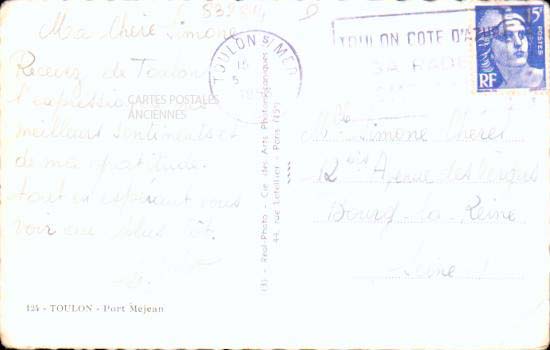 Ma Chère Simone
Recevez de Toulon
l'expression
meilleurs sentiments et
de ma gratitude.
tout en espérant vous
voir au plus tôt.
124 - TOULON - Port Mejean
(3) - Real-Photo - Cie. des Arts Photomécaniques
44, rue Letellier - Paris (15e)
CARTES POSTALES
ANCIENNES
TOULON S/ MER
15
5
TOULON COTE D'AZUR
SA RADE
15F
POSTES
RF
Mlle Simone Chéret
12 bis Avenue des Vergers
Bourg-la-Reine
Seine